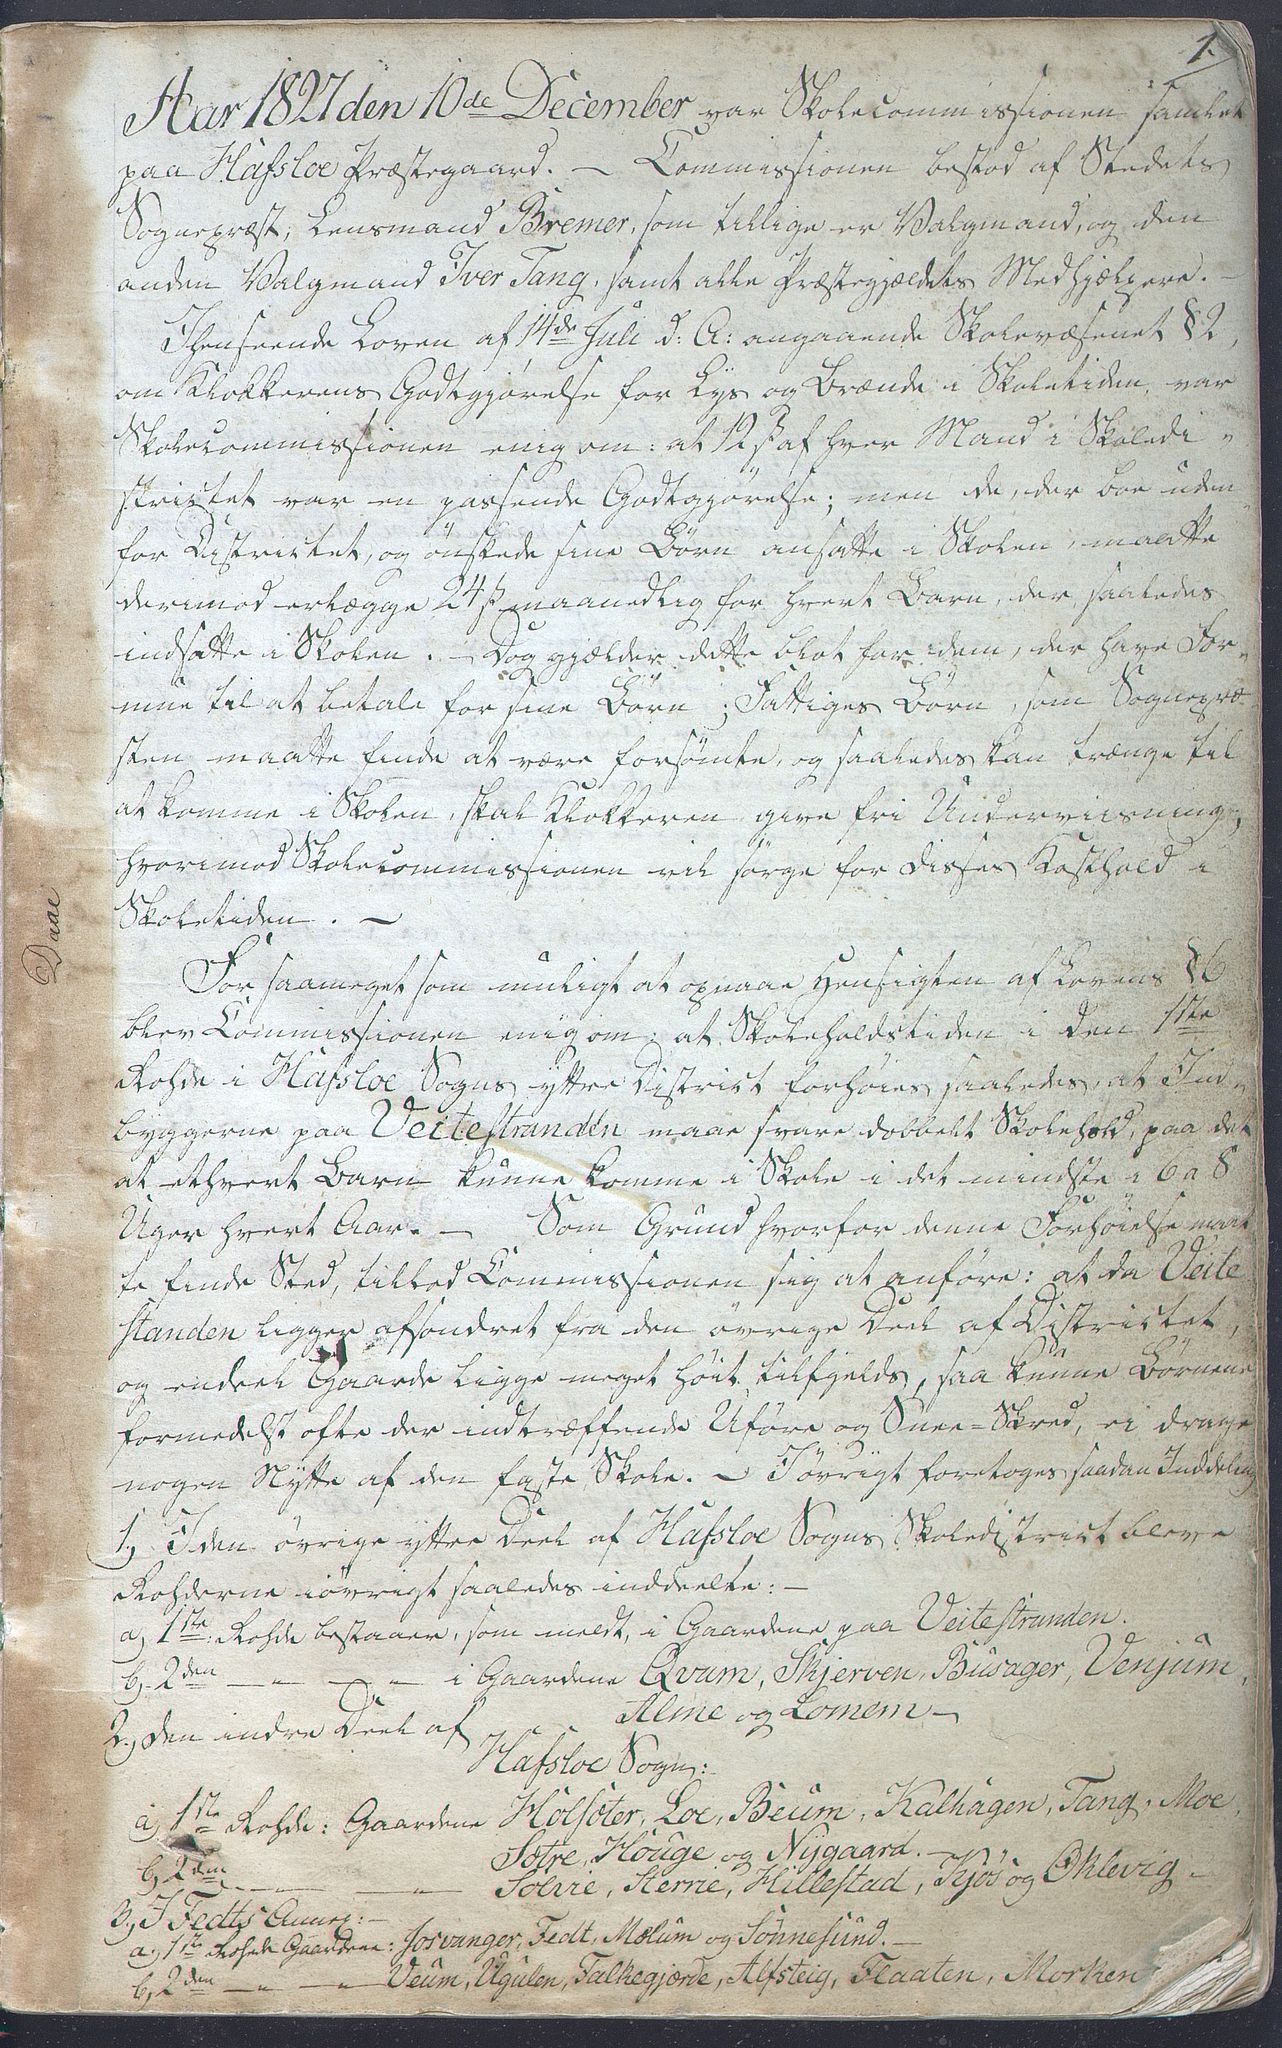 1.
Aar 1827 den 10de December var Skolecommissionen samlet
paa Hafsloe Præstegaard. – Commissionen bestod af Stedets
Sognepræst, Lensmand Bremer, som tillige er Valgmand, og den
anden Valgmand Iver Tang, samt alle Præstegjældets Medhjælpere. –
Ihenseende Loven af 14de Juli d: A: angaaende Skolevæsenet §2,
om Klokkerens Godtgjørelse for Lys og Brænde i Skoletiden, var
Skolecommissionen enig om: at 12 ß af hver Mand i Skoledi-
strictet var en passende Godtgjørelse; men de, der boe uden
for Districtet, og ønskede sine Børn ansatte i Skolen, maatte
derimod erlægge 24 ß maanedlig for hvert Barn, der saaledes
indsatte i Skolen. – Dog gjælder dette blot for dem, der have For-
mue til at betale for sine Børn; Fattiges Børn, som Sognepræ-
sten maatte finde at være forsømte, og saaledes kan trænge til
at komme i Skolen, skal Klokkeren give fri Underviisning,
hvorimod Skolecommissionen vil sørge for disses Kosthold i
Skoletiden. –
For saameget som muligt at opnaae Hensigten af Lovens §6
blev Commissionen enig om: at Skoleholdstiden i den 1ste
Rohde i Hafsloe Sogns yttre District forhøies saaledes, at Ind-
byggerne paa Veitestranden maae svare dobbelt Skolehold, paa det
at ethvert Barn kunne komme i Skole i det mindste i 6 a 8
Uger hvert Aar. – Som Grund hvorfor denne Forhøielse maat
te finde Sted, tillod Commissionen sig at anføre: at da Veite
standen ligger afsondret fra den øvrige Deel af Districtet,
og endeel Gaarde ligge meget høit tilfjelds, saa kunne Børnene
formedelst ofte der indtræffende Uføre og Snee-Skred, ei drage
nogen Nytte af den faste Skole. – Iøvrigt foretoges saadan Inddeling
1, I den øvrige yttre Deel af Hafsloe Sogns Skoledistrict bleve
Rohderne iøvrigt saaledes inddeelte: –
a, 1ste: Rohde bestaaer, som meldt, i Gaardene paa Veitestranden.
b, 2den – " – " i Gaardene Qvam, Skjerven, Busager, Venjum,
Alme og Lomem –
2, den indre Deel af
Hafsloe Sogn:
a, 1ste Rohde: Gaardene Holsæter, Loe, Beum, Kalhagen, Tang, Moe,
Sætre, Houge og Nygaard. –
b, 2den – " – " Solvie, Sterrie, Hillestad, Kjos og Øklevig –
3, I Fedts Annex: –
a, 1ste Rohde Gaardene: Josvanger, Fedt, Mælum og Sønnesund. –
b, 2den – " – " Veum, Ugulen, Falkegjærde, Alfsteig, Flaaten, Morken
Daae